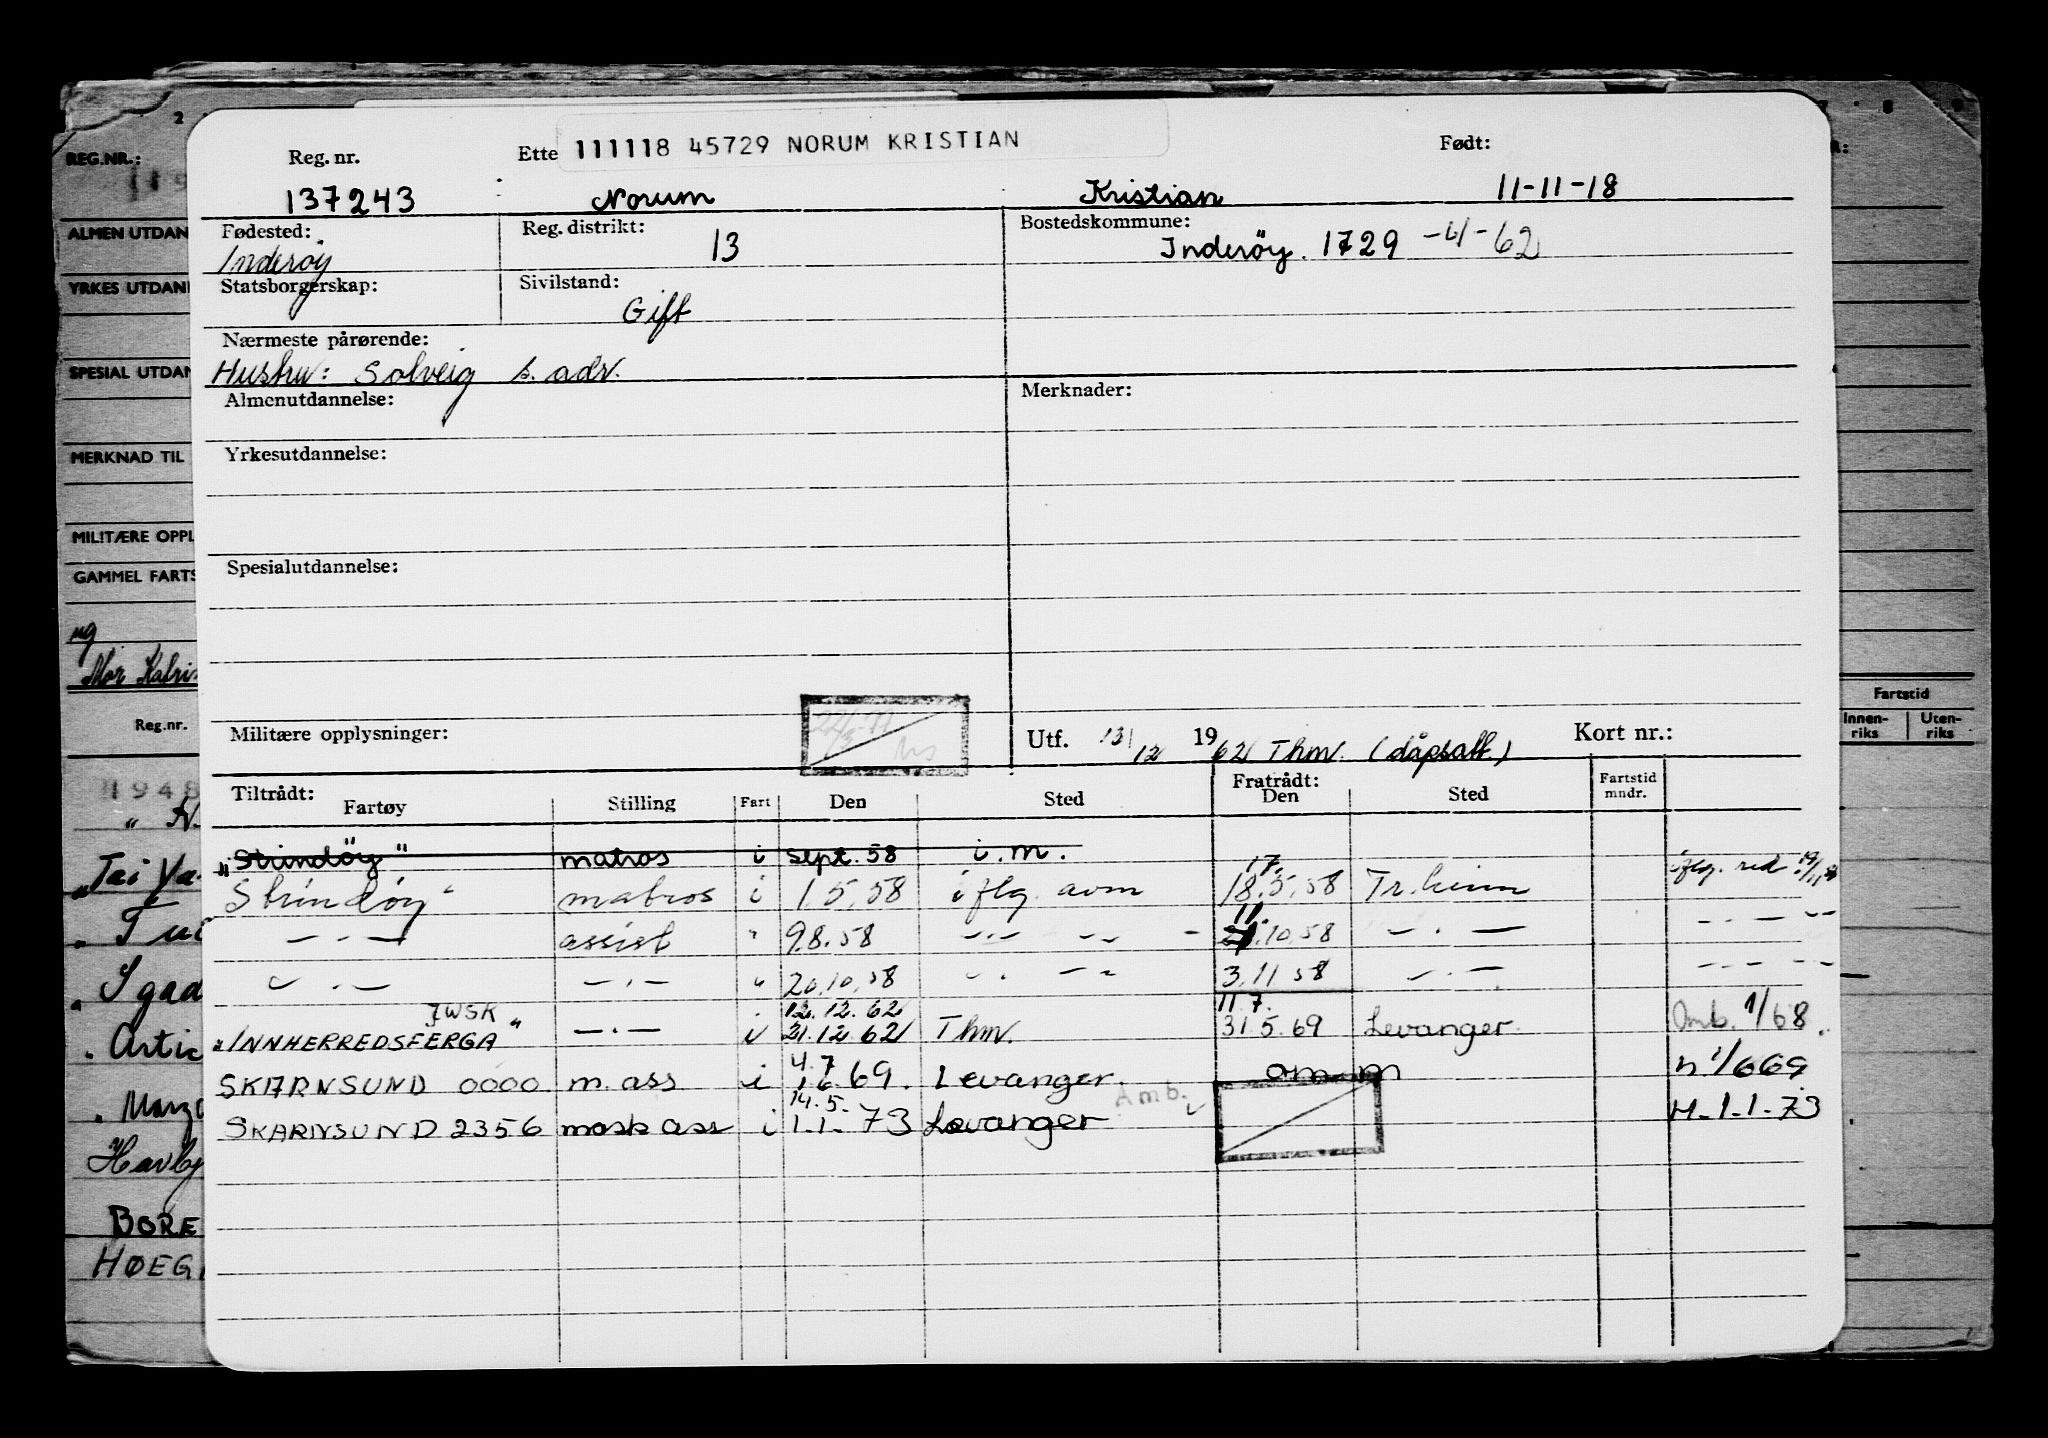 111118 45729 NORUM KRISTIAN
Reg. nr. Ette Født:
137243 Norum Kristian 11-11-18
Fødested: Reg. distrikt: 13 Bostedskommune:
Inderøy Inderöy. 1729 -4-62
Statsborgerskap: Sivilstand:
Gift
Nærmeste pårørende:
Hustru: Solveig s. adr.
Almenutdannelse: Merknader:
Yrkesutdannelse:
Spesialutdannelse:
Militære opplysninger: Utf. 13/12 1962 Thm. (dåpsatt.) Kort nr.:
Tiltrådt: Fratrådt:
Fartøy Stilling Fart Den Sted Den Sted Fartstid mndr.
"Strindöy" matros i sept. 58 i. m.
Strindöy" matros i 1.5.58 iflg. avm 17. 18.5.58 Tr.heim iflg. red 19/11 58
— . — assist " 9.8.58 — . — 11. 21.10.58 — . — — . —
— . — — . — " 20.10.58 — . — 3.11 58 — . — — . —
JWSK 12.12.62 11.7.
"INNHERREDSFERGA" — . — i 21.12 62 Thm. 31.5.69 Levanger Omb. 1/68.
4.7
SKARNSUND 0000 m. ass i 1.6.69. Levanger. omm n 1/669
14.5. Amb.
SKARNSUND 2356 mask ass i 1.1-73 Levanger M-1-1-73
REG.NR.:
ALMEN UTDAN
YRKES UTDAN
SPESIAL UTDAN
MERKNAD TIL
MILITÆRE OPPL
GAMMEL FARTS
ug
Mor Katri
Reg.nr.
1948
" N.
"Tai Ya
" Tu
" Igad
" Artic
" Marg
Havby
BORE
HØEG
Fartstid
Innen-riks Uten-riks